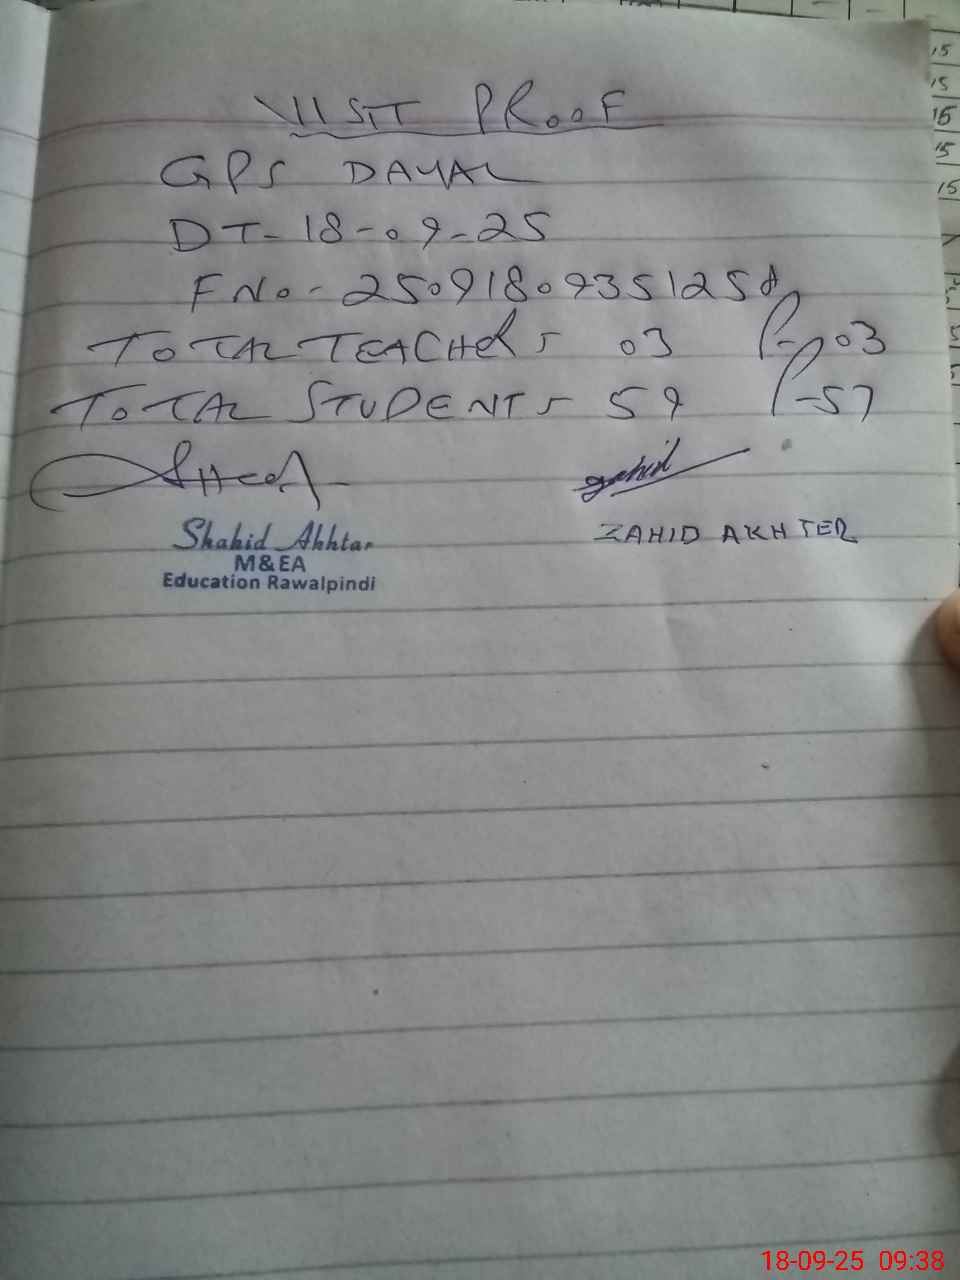 VISIT PROOF
GPS DAYAL
DT- 18-09-25
F No - 2509180935125A
TOTAL TEACHERS 03 P-03
TOTAL STUDENTS 59 P-57
zahid
Shahid Akhtar
ZAHID AKHTER
M&EA
Education Rawalpindi
15
15
15
15
15
18-09-25 09:38